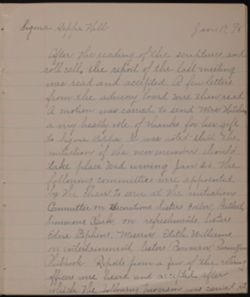 Sigma Kappa Hall Jan. 17, '98
After the reading of the scriptures and
roll call, the report of the last meeting
was read and accepted. A few letters
from the advisory board were then read.
A motion was carried to send Mrs
a very hearty vote of thanks for her gift
to Sigma Kappa. It was voted that the
initiation of the new members should
take place Wed. evening Jan 26. The
following committees were appointed
by the chair to serve at the initiation:
Committee on Sisters
on refreshments, Sisters
Edna Stephens, Edith Williams
on entertainment, Sisters Bowman,
Reports from a few of the
officers were heard and accepted after
which the following programme was carried out